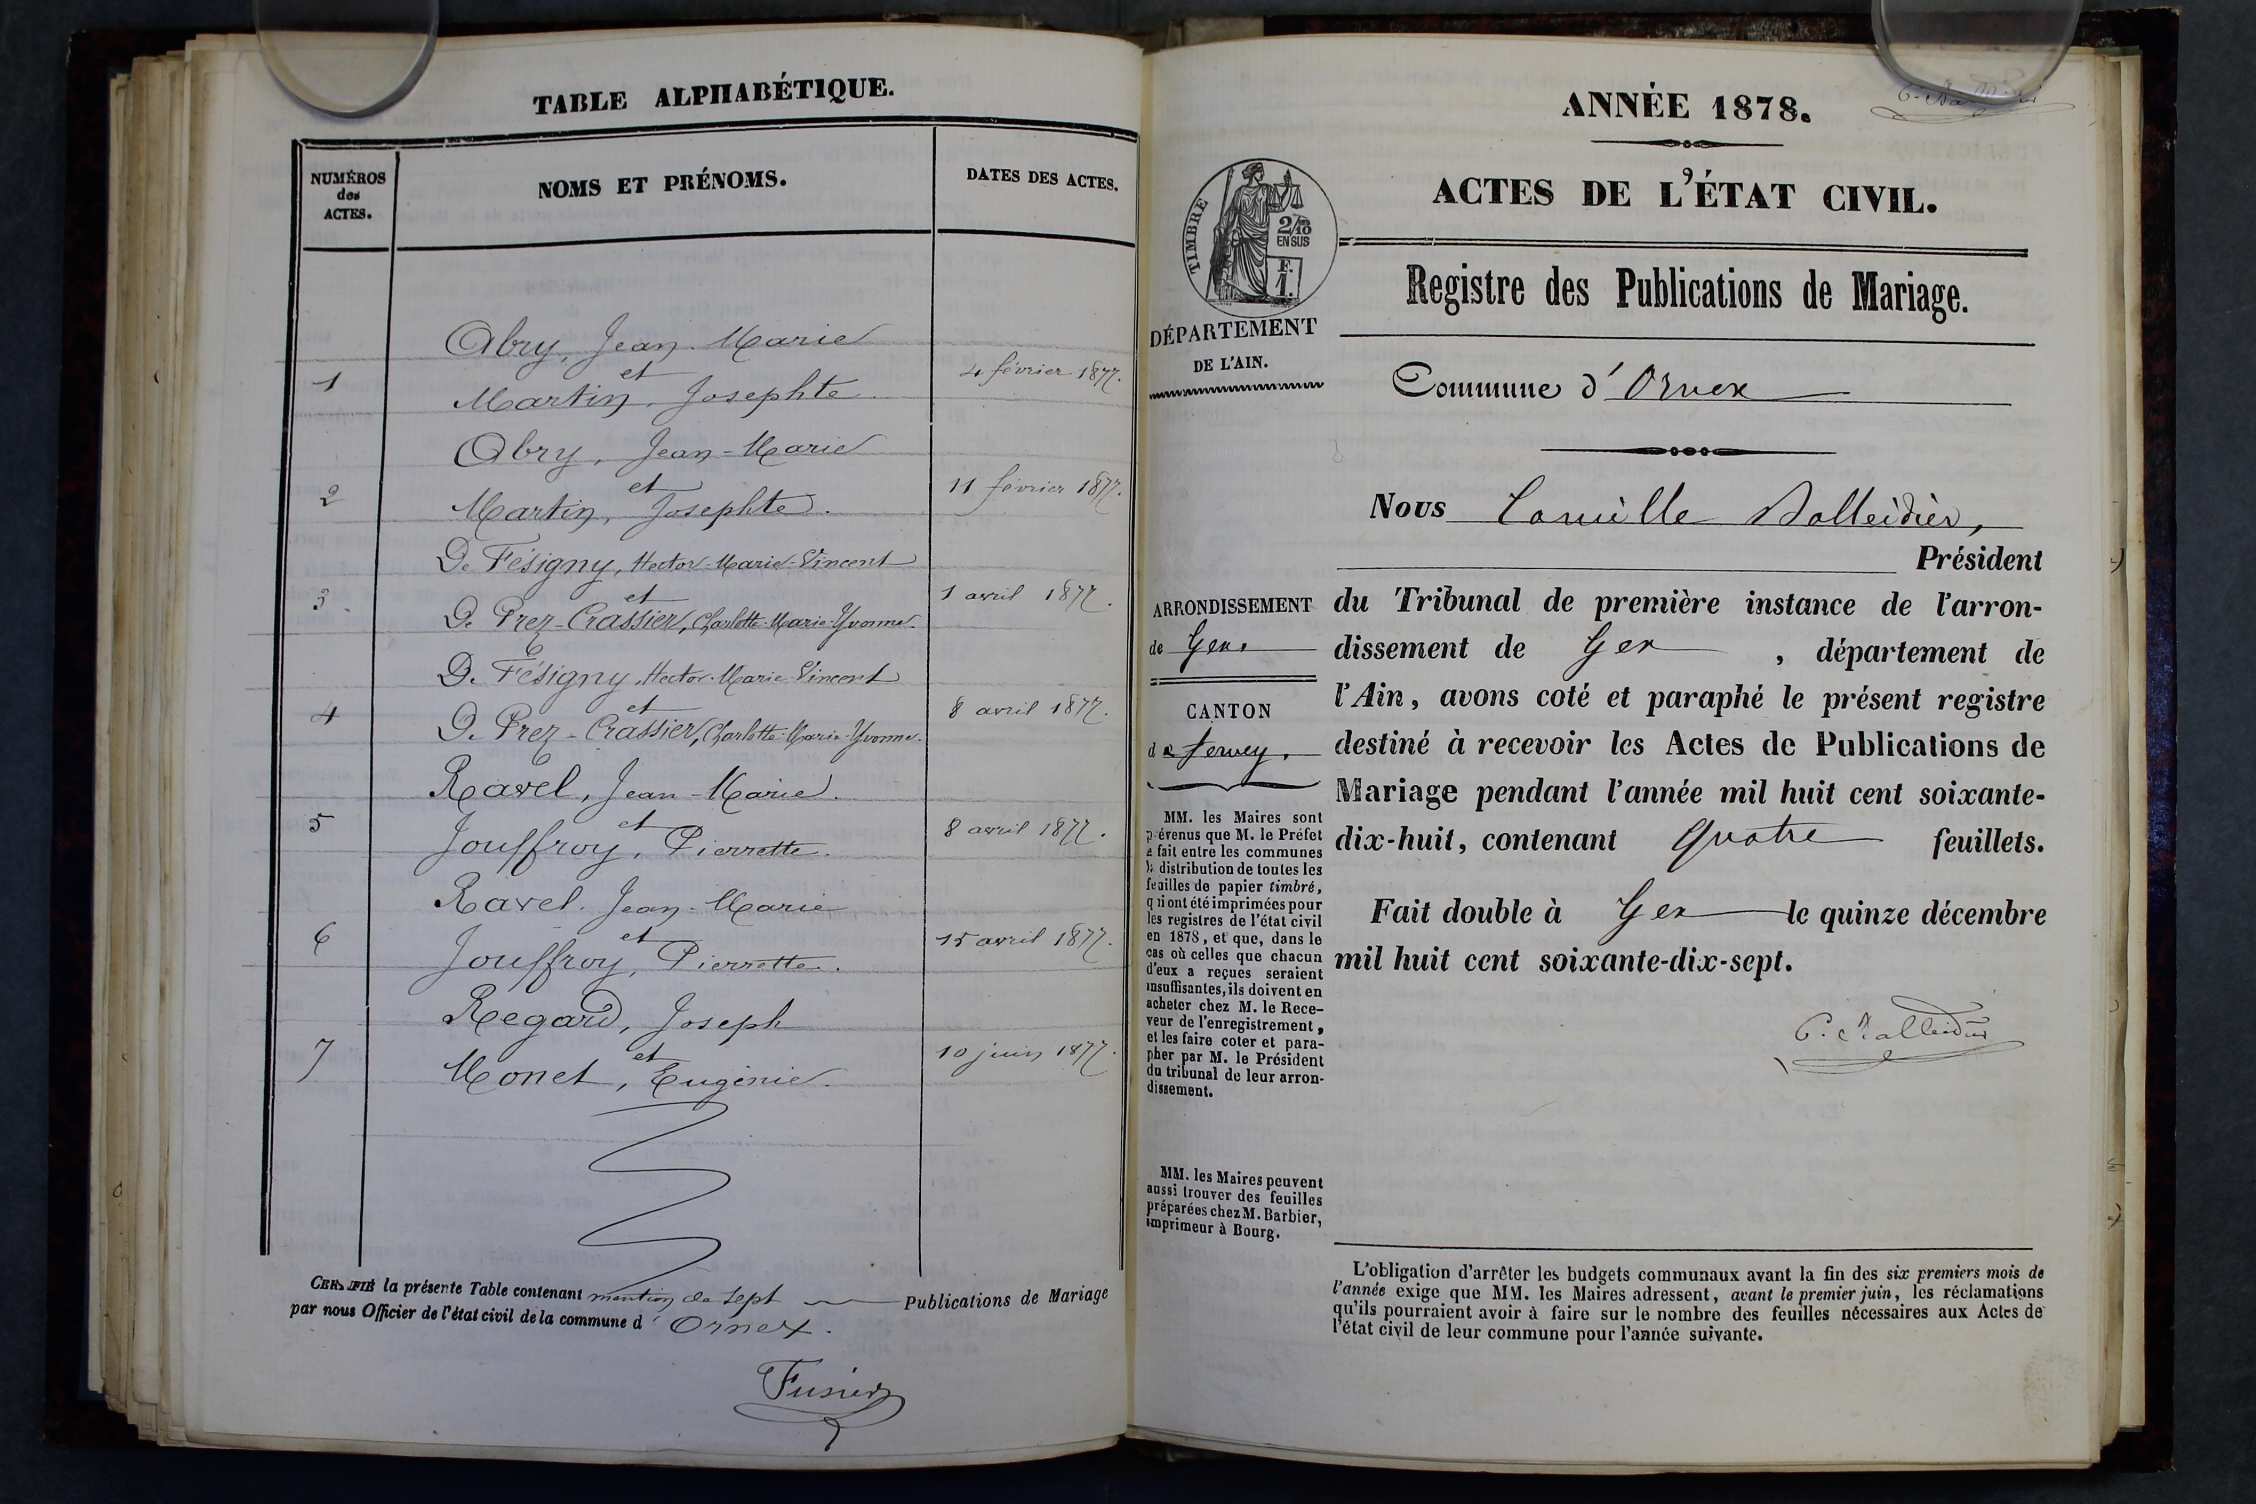 TABLE ALPHABÉTIQUE.
NUMÉROS des ACTES.
NOMS ET PRÉNOMS.
DATES DES ACTES.
Abry, Jean-Marie
et
1
4 février 1877.
Martin, Josephte.
Abry, Jean-Marie
et
2
11 février 1877.
Martin, Josephte.
De Fésigny, Hector-Marie-Vincent
et
3
1 avril 1877.
De Prez-Crassier, Charlotte-Marie-Yvonne.
De Fésigny, Hector-Marie-Vincent
et
4
8 avril 1877.
De Prez-Crassier, Charlotte-Marie-Yvonne.
Ravel, Jean-Marie.
et
5
8 avril 1877.
Jouffroy, Pierrette.
Ravel, Jean-Marie
et
6
15 avril 1877.
Jouffroy, Pierrette.
Regard, Joseph
et
7
10 juin 1877.
Monet, Eugénie.
CERTIFIÉ la présente Table contenant mention de sept Publications de Mariage
par nous Officier de l'état civil de la commune d'Ornex.
ANNÉE 1878.
ACTES DE L'ÉTAT CIVIL.
TIMBRE
2/10
EN SUS
F.
1.
Registre des Publications de Mariage.
DÉPARTEMENT
DE L'AIN.
Commune d'Ornex
Nous Camille Balleidier,
Président
du Tribunal de première instance de l'arron-
dissement de Gex, département de
l'Ain, avons coté et paraphé le présent registre
destiné à recevoir les Actes de Publications de
Mariage pendant l'année mil huit cent soixante-
dix-huit, contenant quatre feuillets.
Fait double à Gex le quinze décembre
mil huit cent soixante-dix-sept.
C. Balleidier
ARRONDISSEMENT
de Gex.
CANTON
de Ferney.
MM. les Maires sont
prévenus que M. le Préfet
a fait entre les communes
la distribution de toutes les
feuilles de papier timbré,
qui ont été imprimées pour
les registres de l'état civil
en 1878, et que, dans le
cas où celles que chacun
d'eux a reçues seraient
insuffisantes, ils doivent en
acheter chez M. le Rece-
veur de l'enregistrement,
et les faire coter et para-
pher par M. le Président
du tribunal de leur arron-
dissement.
MM. les Maires peuvent
aussi trouver des feuilles
préparées chez M. Barbier,
imprimeur à Bourg.
L'obligation d'arrêter les budgets communaux avant la fin des six premiers mois de
l'année exige que MM. les Maires adressent, avant le premier juin, les réclamations
qu'ils pourraient avoir à faire sur le nombre des feuilles nécessaires aux Actes de
l'état civil de leur commune pour l'année suivante.